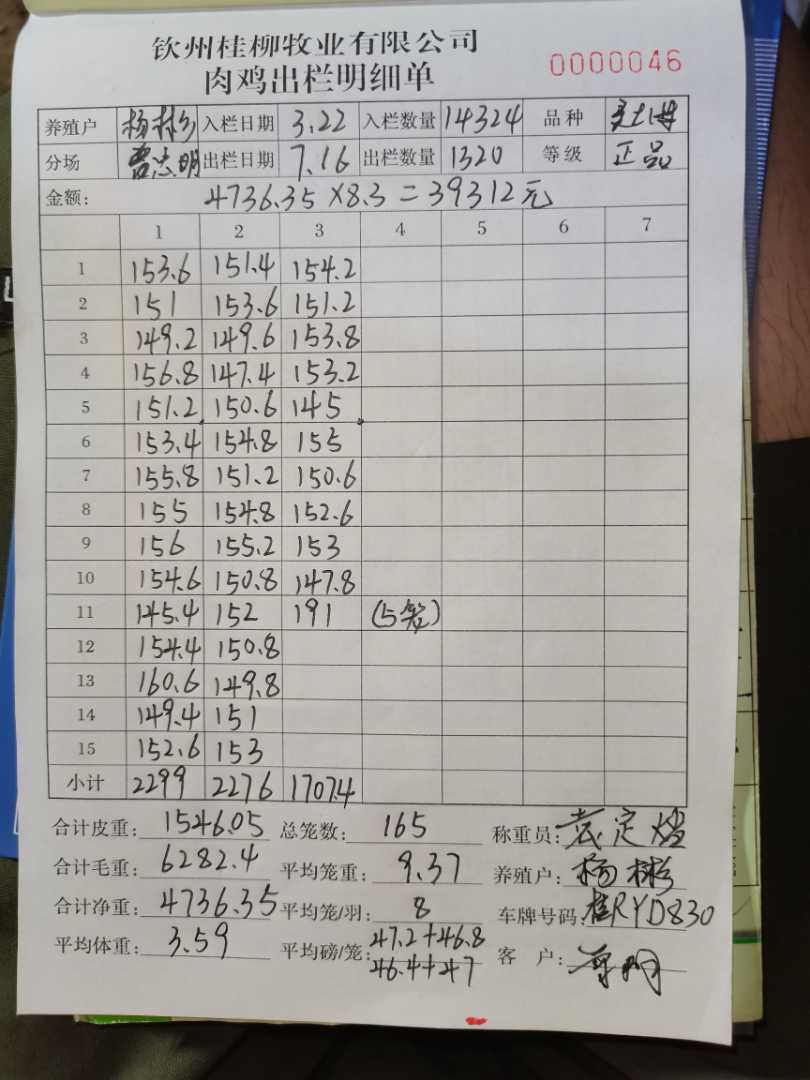 钦州桂柳牧业有限公司
肉鸡出栏明细单 0000046
养殖户 杨彬 入栏日期 3.22 入栏数量 14324 品种
分场 曾志明 出栏日期 7.16 出栏数量 1320 等级 正品
金额: 4736.35×8.3=39312元
1 2 3 4 5 6 7
1 153.6 151.4 154.2
2 151 153.6 151.2
3 149.2 149.6 153.8
4 156.8 147.4 153.2
5 151.2 150.6 145
6 153.4 154.8 155
7 155.8 151.2 150.6
8 155 154.8 152.6
9 156 155.2 153
10 154.6 150.8 147.8
11 145.4 152 191 (5笼)
12 154.4 150.8
13 160.6 149.8
14 149.4 151
15 152.6 153
小计 2299 2276 1707.4
合计皮重: 1546.05 总笼数: 165 称重员:
合计毛重: 6282.4 平均笼重: 9.37 养殖户: 杨彬
合计净重: 4736.35 平均笼/羽: 8 车牌号码: 桂RYD830
平均体重: 3.59 平均磅/笼: 47.2+46.8 客 户:
46.4+47